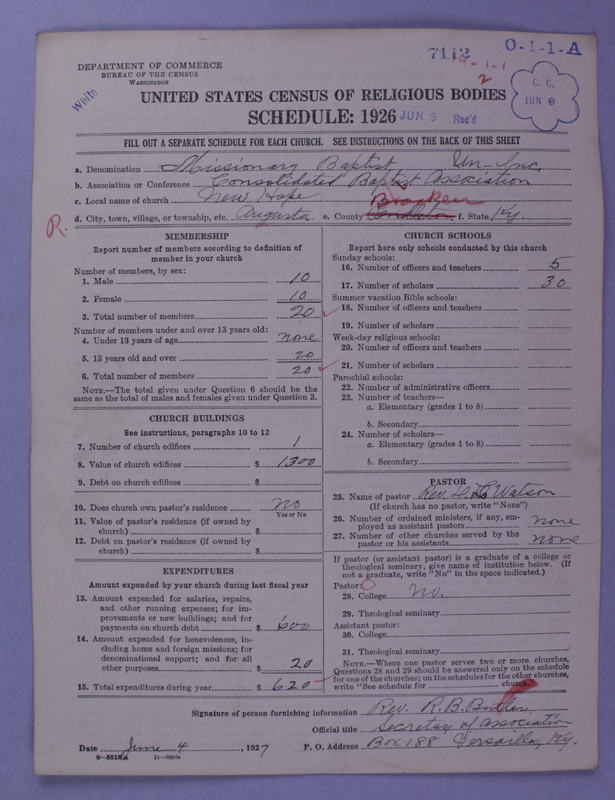 7112
O-1-1-A
DEPARTMENT OF COMMERCE
BUREAU OF THE CENSUS
WASHINGTON
White
C. C.
JUN 9
UNITED STATES CENSUS OF RELIGIOUS BODIES
SCHEDULE: 1926 JUN 9 Rec'd
FILL OUT A SEPARATE SCHEDULE FOR EACH CHURCH. SEE INSTRUCTIONS ON THE BACK OF THIS SHEET
a. Denomination Missionary Baptist Un-Inc.
b. Association or Conference Consolidated Baptist Association
c. Local name of church New Hope Bracken
d. City, town, village, or township, etc. Augusta e. County Pendleton f. State Ky.
R.
MEMBERSHIP
Report number of members according to definition of
member in your church
Number of members, by sex:
1. Male 10
2. Female 10
3. Total number of members 20
Number of members under and over 13 years old:
4. Under 13 years of age none
5. 13 years old and over 20
6. Total number of members 20
NOTE.—The total given under Question 6 should be the
same as the total of males and females given under Question 3.
CHURCH BUILDINGS
See instructions, paragraphs 10 to 12
7. Number of church edifices 1
8. Value of church edifices $ 1300
9. Debt on church edifices $
10. Does church own pastor's residence? no
Yes or No
11. Value of pastor's residence (if owned by
church) $
12. Debt on pastor's residence (if owned by
church) $
EXPENDITURES
Amount expended by your church during last fiscal year
13. Amount expended for salaries, repairs,
and other running expenses; for im-
provements or new buildings; and for
payments on church debt $ 600
14. Amount expended for benevolences, in-
cluding home and foreign missions; for
denominational support; and for all
other purposes $ 20
15. Total expenditures during year $ 620
CHURCH SCHOOLS
Report here only schools conducted by this church
Sunday schools:
16. Number of officers and teachers 5
17. Number of scholars 30
Summer vacation Bible schools:
18. Number of officers and teachers
19. Number of scholars
Week-day religious schools:
20. Number of officers and teachers
21. Number of scholars
Parochial schools:
22. Number of administrative officers
23. Number of teachers—
a. Elementary (grades 1 to 8)
b. Secondary
24. Number of scholars—
a. Elementary (grades 1 to 8)
b. Secondary
PASTOR
25. Name of pastor Rev. Watson
(If church has no pastor, write "None")
26. Number of ordained ministers, if any, em-
ployed as assistant pastors none
27. Number of other churches served by the
pastor or his assistants none
If pastor (or assistant pastor) is a graduate of a college or
theological seminary, give name of institution below. (If
not a graduate, write "No" in the space indicated.)
Pastor:
28. College no.
29. Theological seminary
Assistant pastor:
30. College
31. Theological seminary
NOTE.—Where one pastor serves two or more churches,
Questions 28 and 29 should be answered only on the schedule
for one of the churches; on the schedules for the other churches,
write "See schedule for church."
Signature of person furnishing information Rev. R. B. Butler
Official title Secretary of Association
Date June 4, 1927 P. O. Address Box 188 Versailles, Ky.